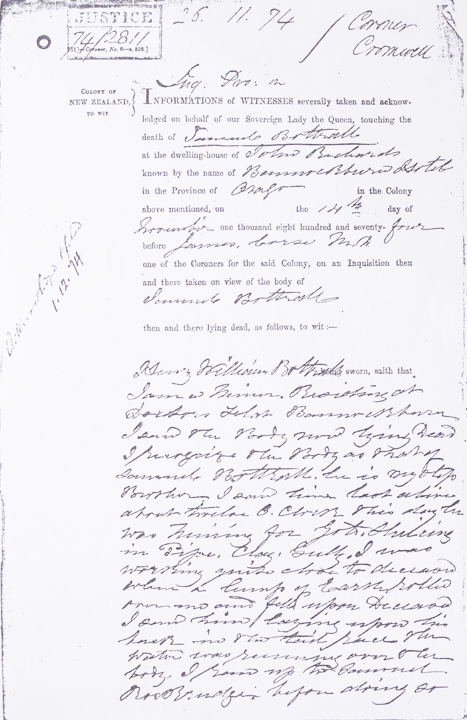 JUSTICE
74/2811
Coroner, No. 6
26. 11. 74
Coroner
Cromwell
Inq: Pro: on
COLONY OF
NEW ZEALAND,
TO WIT.
INFORMATIONS of WITNESSES severally taken and acknow-
ledged on behalf of our Sovereign Lady the Queen, touching the
death of Samuel Bottrall
at the dwelling-house of John Richards
known by the name of Bannockburn Hotel
in the Province of Otago in the Colony
above mentioned, on the 14th day of
November one thousand eight hundred and seventy-four
before James Corse M.D
one of the Coroners for the said Colony, on an Inquisition then
and there taken on view of the body of
Samuel Bottrall
then and there lying dead, as follows, to wit:—
1.12.74
Henry William Bottrall being sworn, saith that
I am a Miner. Residing at
Doctors Flat Bannockburn
I saw the Body now lying Dead
I recognize the Body as that of
Samuel Bottrall. he is my Step
Brother I saw him last alive
about twelve O. Clock this day he
was Mining for Gold. Sluicing
in Pipe. Clay. Gully. I was
working quite close to deceased
when a lump of Earth rolled
over me and fell upon Deceased
I saw him laying upon his
back in the tail race the
water was running over the
body, I ran up to Samuel
before doing so